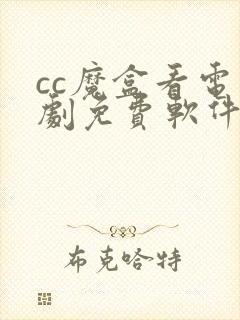 cc魔盒看電
劇免費軟件
布克哈特